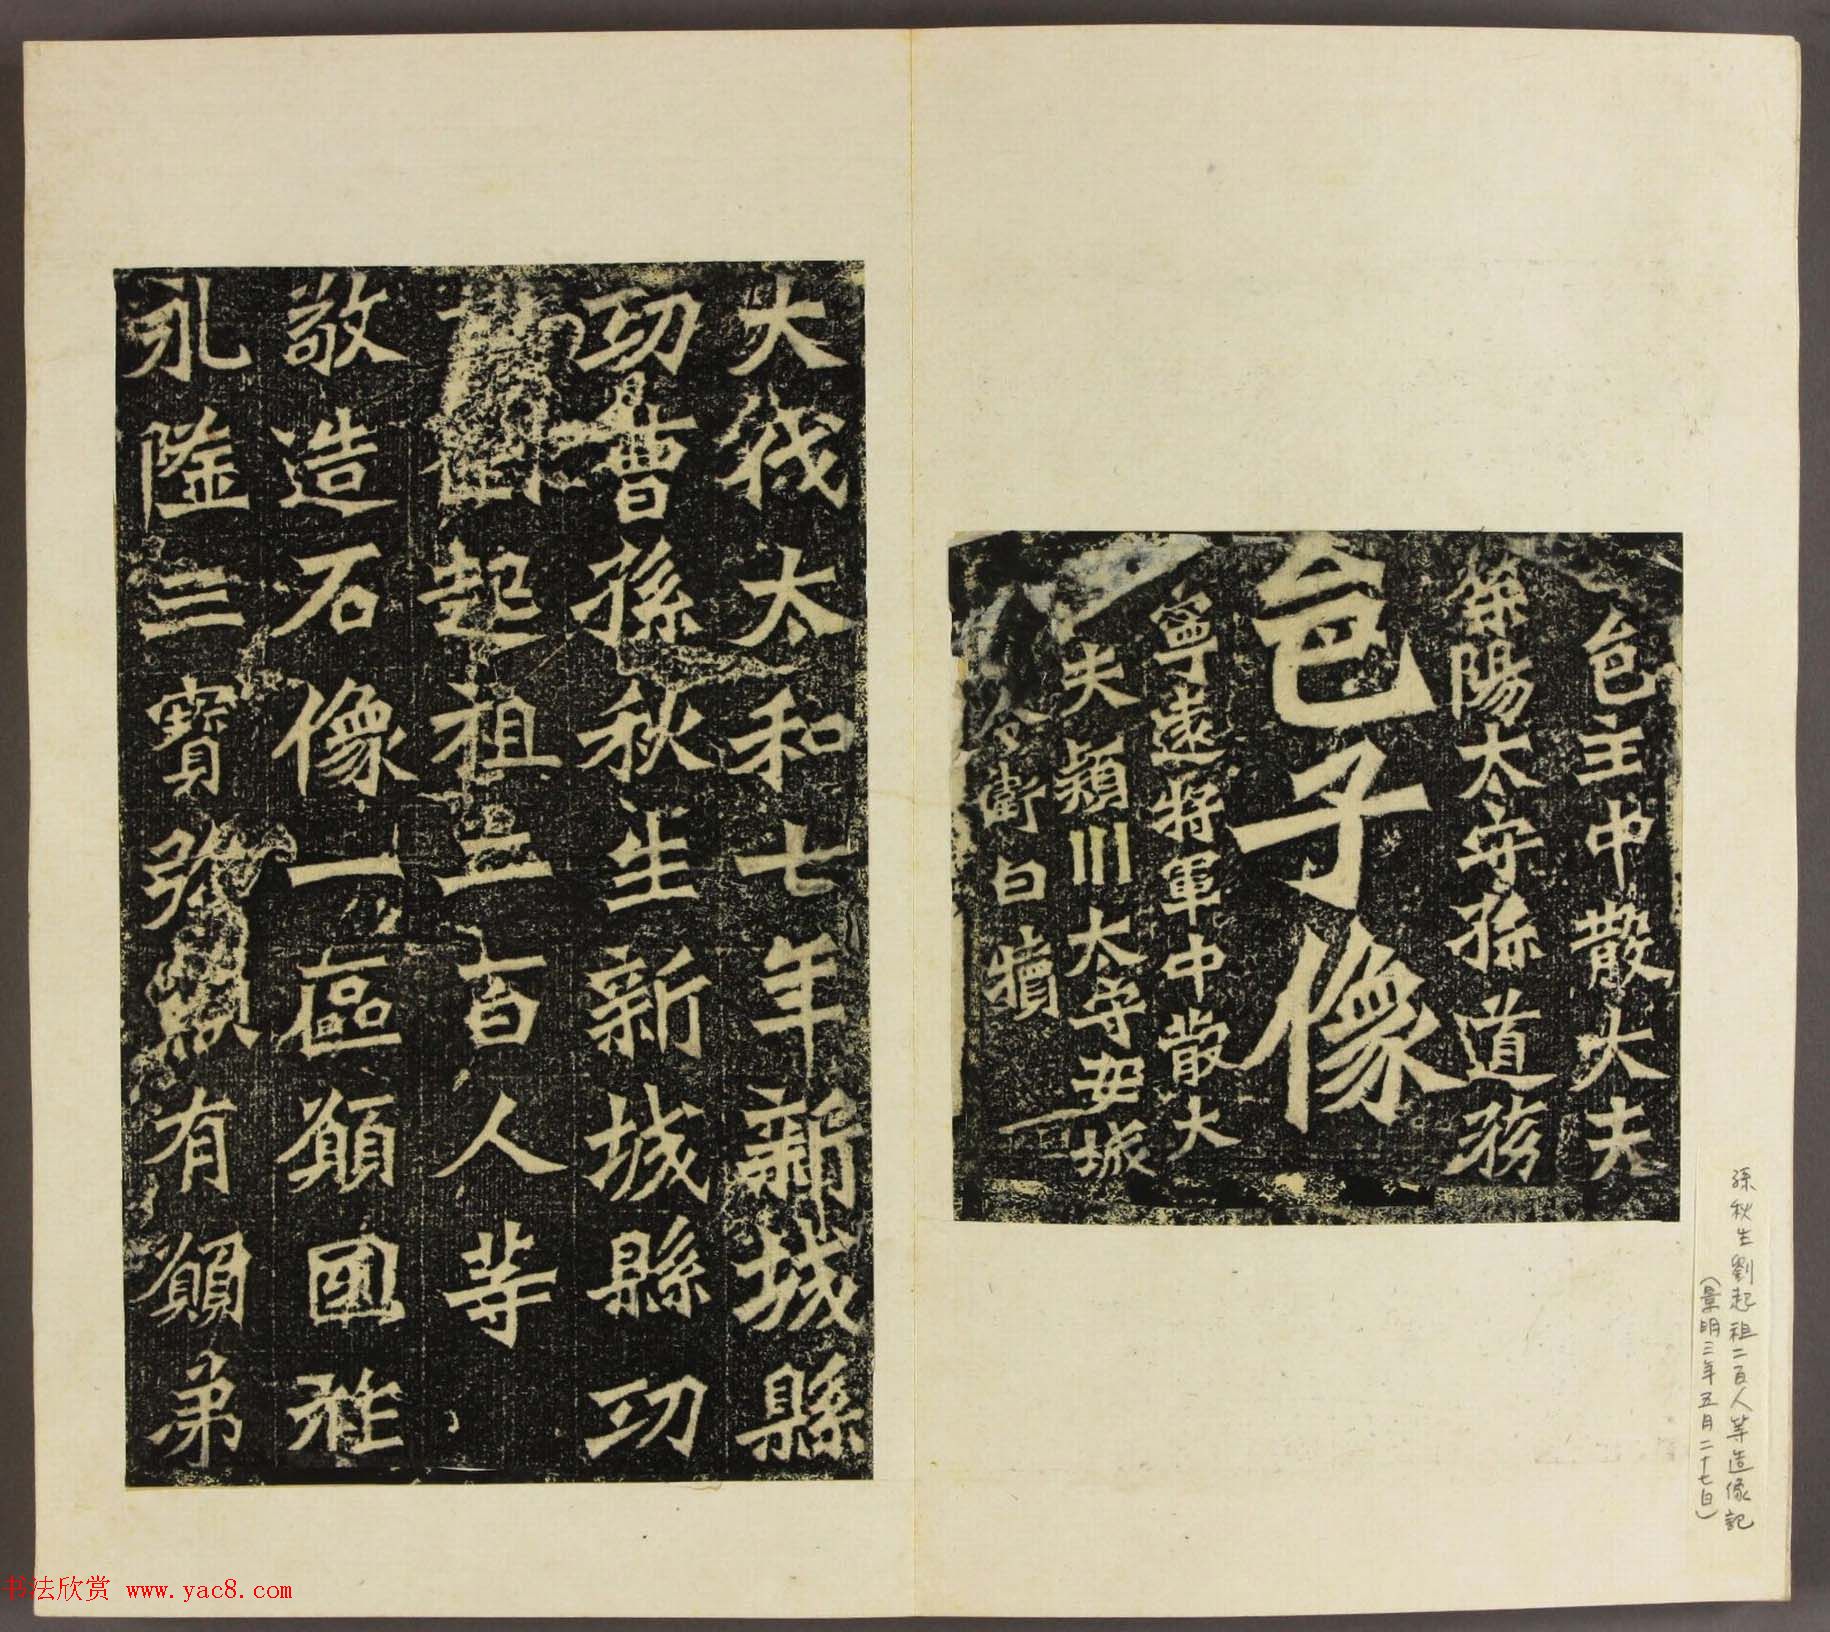 邑主中散大夫
滎陽太守孫道務
邑子像
寧遠將軍中散大
夫潁川太守安城
令衛白犢
大代太和七年新城縣
功曹孫秋生新城縣功
曹劉起祖二百人等
敬造石像一區願國祚
永隆三寶弥顯有願弟
孫秋生劉起祖二百人等造像記
(景明三年五月二十七日)
书法欣赏 www.yac8.com